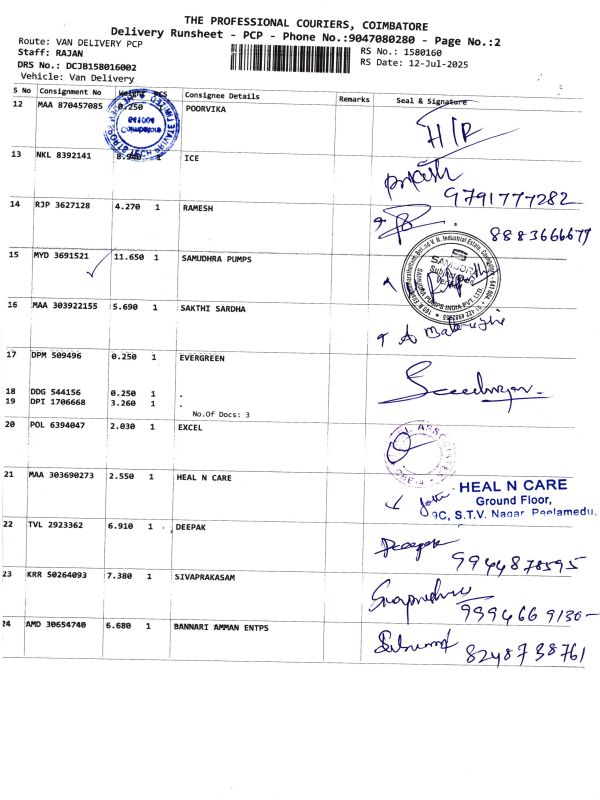 THE PROFESSIONAL COURIERS, COIMBATORE
Delivery Runsheet - PCP - Phone No.:9047080280 - Page No.:2
Route: VAN DELIVERY PCP
Staff: RAJAN
RS No.: 1580160
DRS No.: DCJB158016002
RS Date: 12-Jul-2025
Vehicle: Van Delivery
S No Consignment No Weight PCS Consignee Details Remarks Seal & Signature
12 MAA 870457085 0.250 POORVIKA
H/R
13 NKL 8392141 8.940 1 ICE
9791777282
14 RJP 3627128 4.270 1 RAMESH
8883666679
15 MYD 3691521 11.650 1 SAMUDHRA PUMPS
16 MAA 303922155 5.690 1 SAKTHI SARDHA
17 DPM 509496 0.250 1 EVERGREEN
18 DDG 544156 0.250 1 .
19 DPI 1706668 3.260 1 .
No.Of Docs: 3
20 POL 6394047 2.030 1 EXCEL
21 MAA 303690273 2.550 1 HEAL N CARE
HEAL N CARE
Ground Floor,
9C, S.T.V. Nagar, Peelamedu,
22 TVL 2923362 6.910 1 DEEPAK
Deepak
9944878595
23 KRR 50264093 7.380 1 SIVAPRAKASAM
9994669130
24 AMD 30654740 6.680 1 BANNARI AMMAN ENTPS
8248738761